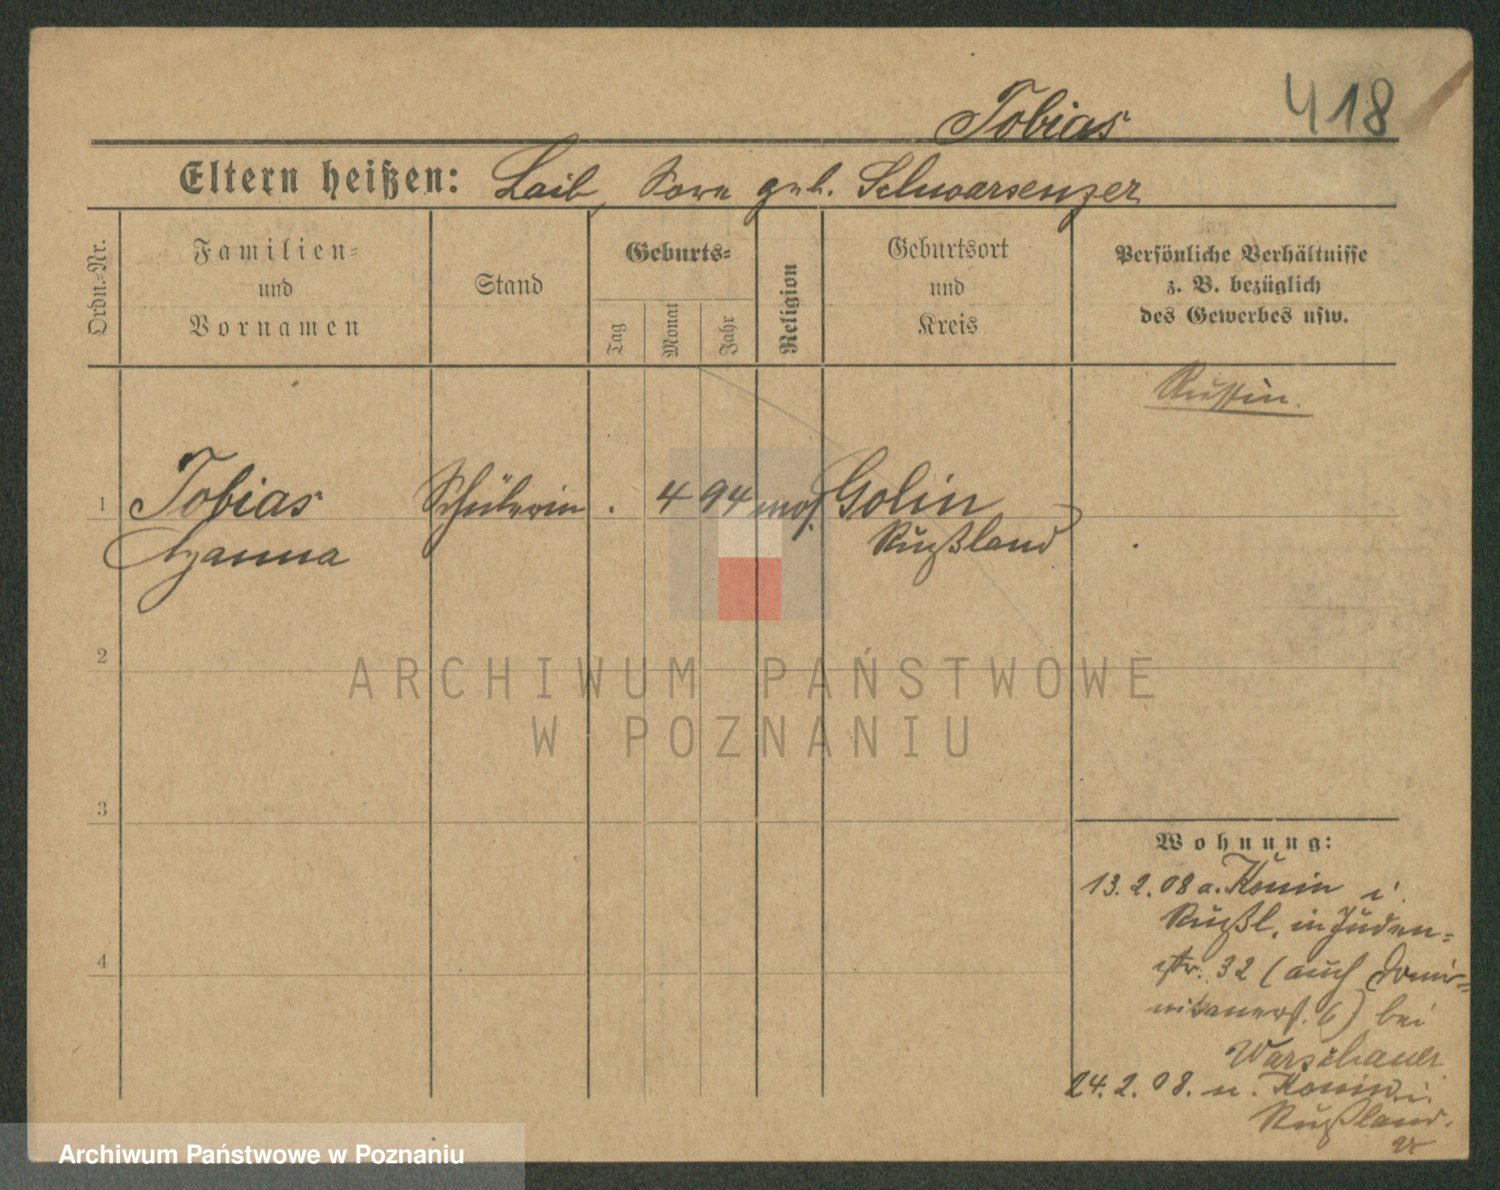 418
Tobias
Eltern heißen: Laib, Sara geb. Schwarsenzer
Ordn.-Nr.
Familien-
und
Vornamen
Stand
Geburts-
Tag
Monat
Jahr
Religion
Geburtsort
und
Kreis
Persönliche Verhältnisse
z. B. bezüglich
des Gewerbes usw.
Russin.
1 Tobias Schülerin . 4 94 mos. Golin
Rußland
2
3
4
ARCHIWUM PAŃSTWOWE
W POZNANIU
Wohnung:
13.2.08 a. Konin i.
Rußl. in Juden-
str. 32 (auch Domi-
nikanerst. 6) bei
Warschauer
24.2.08. n. Konin i.
Rußland.
Archiwum Państwowe w Poznaniu